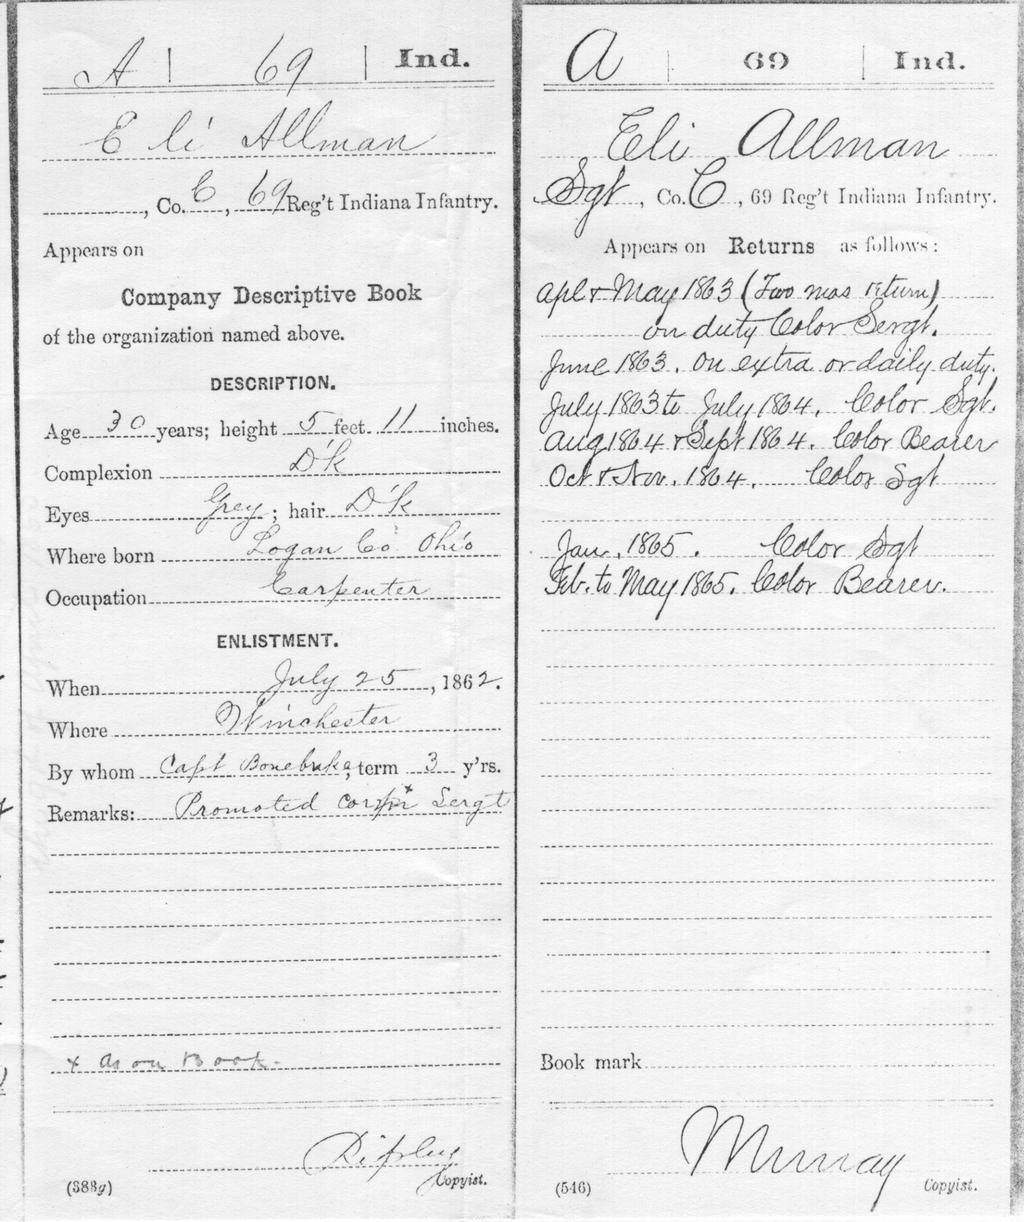 A | 69 | Ind.
Eli Allman
, Co. C, 69 Reg't Indiana Infantry.
Appears on
Company Descriptive Book
of the organization named above.
DESCRIPTION.
Age 30 years; height 5 feet 11 inches.
Complexion D'k
Eyes Grey; hair D'k
Where born Logan Co Ohio
Occupation Carpenter
ENLISTMENT.
When July 25, 1862.
Where Winchester
By whom Capt Bonebrake, term 3 y'rs.
Remarks: Promoted Sergt
x As on Book.
Copyist.
(383g)
A | 69 | Ind.
Eli Allman
Sgt, Co. C, 69 Reg't Indiana Infantry.
Appears on Returns as follows:
Apl & May 1863 (Two mos return)
on duty Color Sergt.
June 1863. On extra or daily duty.
July 1863 to July 1864. Color Sgt.
Aug 1864 & Sept 1864. Color Bearer
Oct & Nov. 1864. Color Sgt
Jan. 1865. Color Sgt
Feb. to May 1865. Color Bearer.
Book mark
Murray
(546) Copyist.